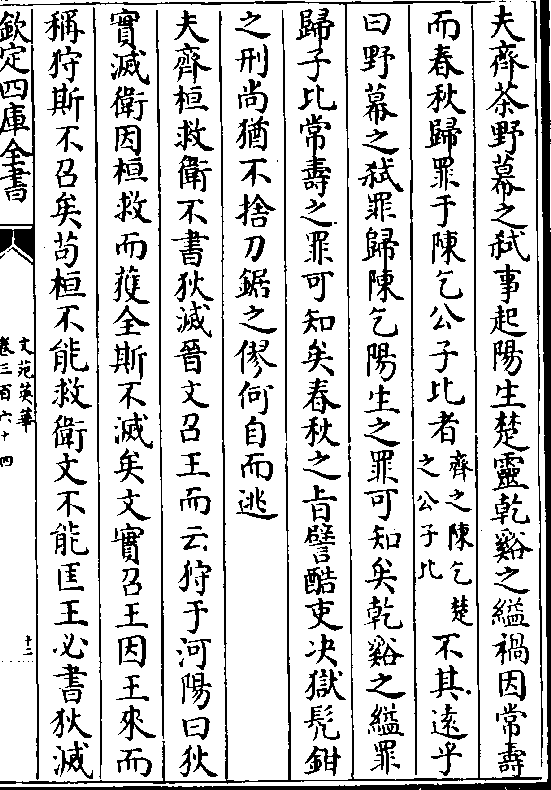 夫齊荼野幕之弑事起陽生楚靈乾谿之縊禍因常壽
而春秋歸罪于陳乞公子比者齊之陳乞楚之公子比不其遠乎
曰野幕之弑罪歸陳乞陽生之罪可知矣乾谿之縊罪
歸子比常壽之罪可知矣春秋之旨譬酷吏决獄髠鉗
之刑尚猶不捨刀鋸之僇何自而逃
夫齊桓救衛不書狄滅晉文召王而云狩于河陽曰狄
實滅衛因桓救而獲全斯不滅矣文實召王因王來而
稱狩斯不召矣苟桓不能救衛文不能匡王必書狄滅
欽定四庫全書
文苑英華
卷三百六十四
十二